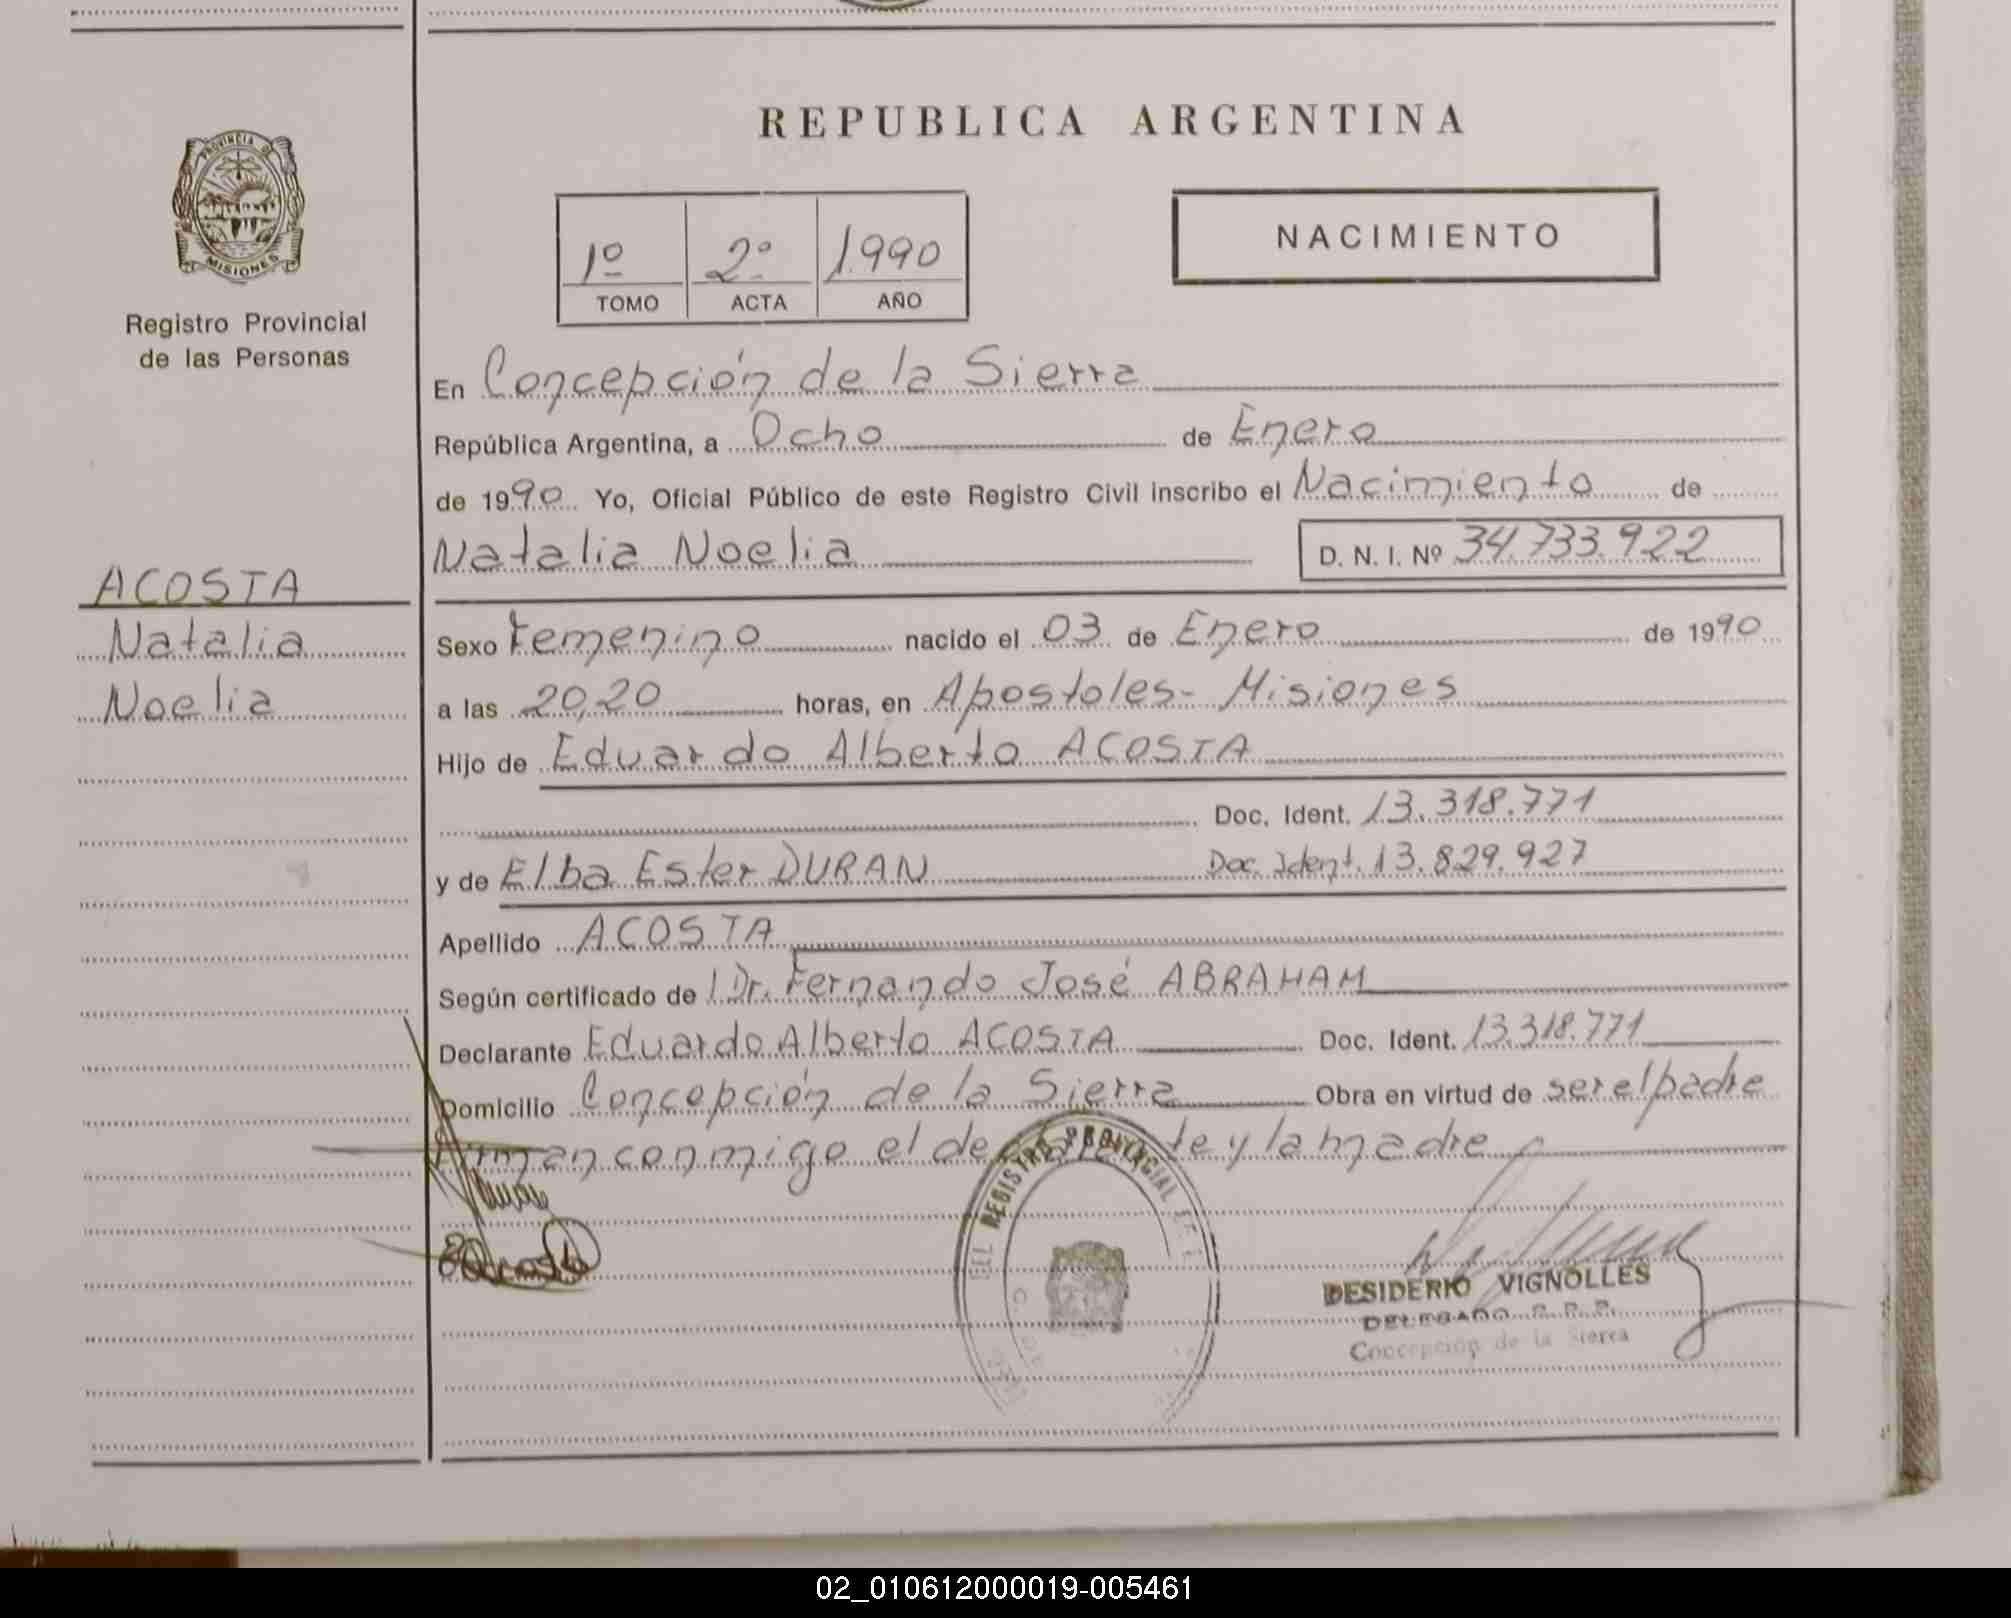 REPUBLICA ARGENTINA
PROVINCIA DE
MISIONES
Registro Provincial
de las Personas
1º 2º 1.990
TOMO ACTA AÑO
NACIMIENTO
En Concepción de la Sierra
República Argentina, a Ocho de Enero
de 1990 Yo, Oficial Público de este Registro Civil inscribo el Nacimiento de
Natalia Noelia D. N. I. Nº 34.733.922
ACOSTA
Natalia
Noelia
Sexo Femenino nacido el 03 de Enero de 1990
a las 20,20 horas, en Apostoles - Misiones
Hijo de Eduardo Alberto ACOSTA
Doc. Ident. 13.318.771
y de Elba Ester DURAN Doc. Ident. 13.829.927
Apellido ACOSTA
Según certificado de l Dr. Fernando José ABRAHAM
Declarante Eduardo Alberto ACOSTA Doc. Ident. 13.318.771
Domicilio Concepción de la Sierra Obra en virtud de ser el padre
Firman conmigo el declarante y la madre
REGISTRO PROVINCIAL
DESIDERIO VIGNOLLES
DELEGADO R. P. P.
Concepción de la Sierra
02_010612000019-005461